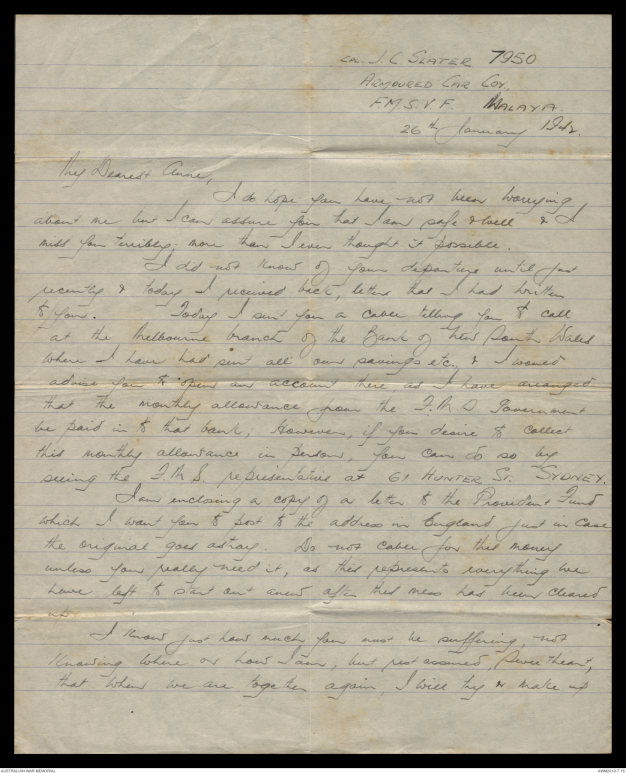 CPL. J. C. SLATER 7950
ARMOURED CAR COY.
F.M.S.V.F. MALAYA.
26th January 1942.
My Dearest Anne,
I do hope you have not been worrying
about me but I can assure you that I am safe & well & I
miss you terribly; more than I ever thought it possible.
I did not know of your departure until just
recently & today I received back, letters that I had written
to you. Today I sent you a cable telling you to call
at the Melbourne branch of the Bank of New South Wales
where I have had sent all our savings etc. & I would
advise you to open an account there, as I have arranged
that the monthly allowance from the F.M.S. Government
be paid in to that bank, However, if you desire to collect
this monthly allowance in person, you can do so by
seeing the F.M.S. representative at 61 HUNTER ST. SYDNEY.
I am enclosing a copy of a letter to the Provident Fund
which I want you to post to the address in England just in case
the original goes astray. Do not cable for this money
unless you really need it, as this represents everything we
have left to start out anew after this mess has been cleared
up.
I know just how much you must be suffering, not
knowing where or how I am, but rest assured, Sweetheart,
that when we are together again, I will try & make up
AUSTRALIAN WAR MEMORIAL